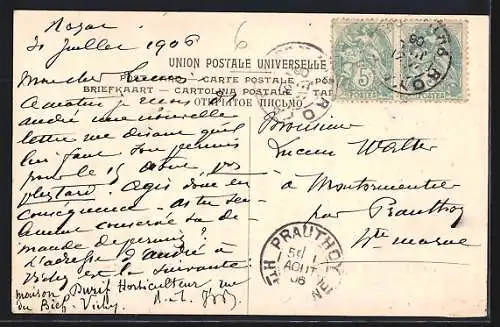 Royat
31 Juillet 1906
6
UNION POSTALE UNIVERSELLE
CARTE POSTALE
BRIEFKAART — CARTOLINA POSTALE —
ОТКРЫТОЕ ПИСЬМО
Mon cher Lucien
Ce matin je reçois
André une nouvelle
lettre me disant qu'il
lui faut son permis
pour le 15 août, pas
plus tard. Agis donc en
conséquence. As-tu
conservé sa de-
mande de permis?
L'adresse d'André à
Vichy est la suivante:
maison Durif Horticulteur, rue
du Bief. Vichy.
Monsieur
Lucien Walter
à Montormentier
par Prauthoy
Hte marne
5
POSTES
POSTES
ROYAT
PRAUTHOY
1
AOUT
06
HTE MARNE